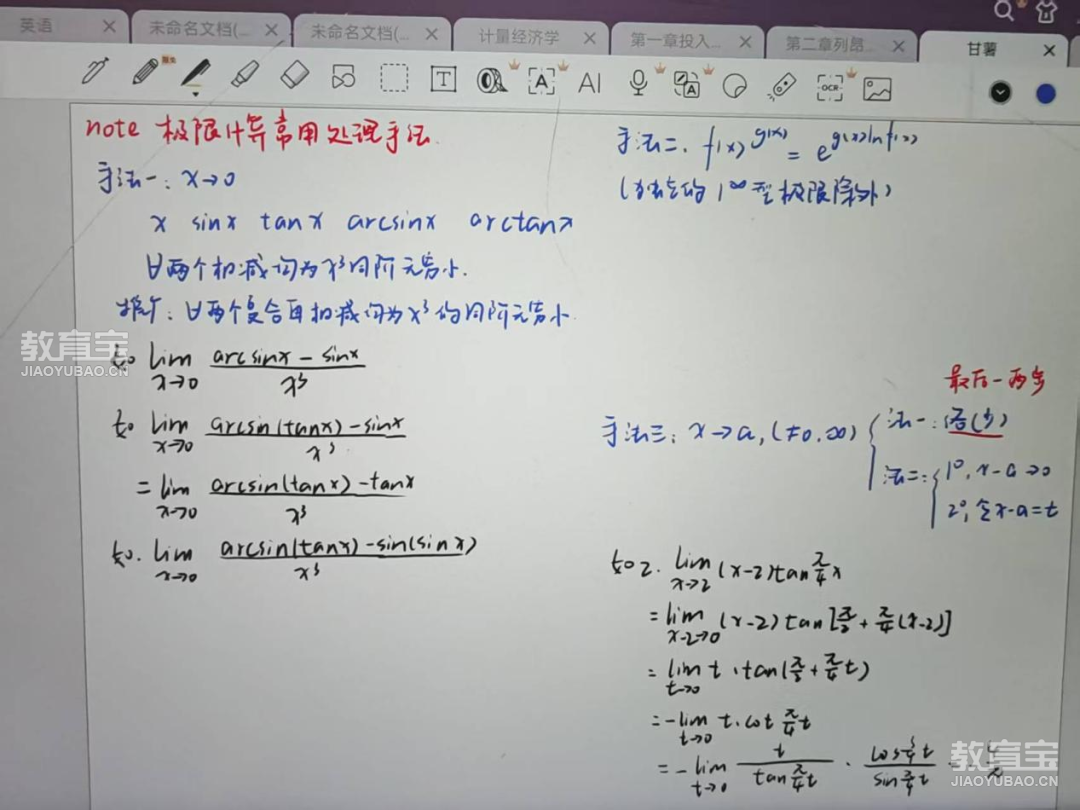 英语 未命名文档(... 未命名文档(... 计量经济学 第一章投入... 第二章列昂... 甘薯
T A AI OCR
note 极限计算常用处理手法
手法一：x→0
x sinx tanx arcsinx arctanx
∀两个相减均为x³同阶无穷小.
推广：∀两个复合再相减均为x³的同阶无穷小
如 lim x→0 (arcsinx - sinx)/x³
如 lim x→0 (arcsin(tanx) - sinx)/x³
= lim x→0 (arcsin(tanx) - tanx)/x³
如. lim x→0 (arcsin(tanx) - sin(sinx))/x³
手法二、f(x)^g(x) = e^g(x)lnf(x)
的 1^∞ 型极限除外)
最后一两步
手法三：x→a, (≠0,∞) { 法一：洛(少)
法二：{ 1°, x-a→0
2°, 令x-a=t
如2. lim x→2 (x-2)tan π/4 x
= lim x-2→0 (x-2)tan[π/2 + π/4(x-2)]
= lim t→0 t·tan(π/2 + π/4 t)
= -lim t→0 t·cot π/4 t
= -lim t→0 t/(tan π/4 t)
教育宝
JIAOYUBAO.CN
教育宝
JIAOYUBAO.CN